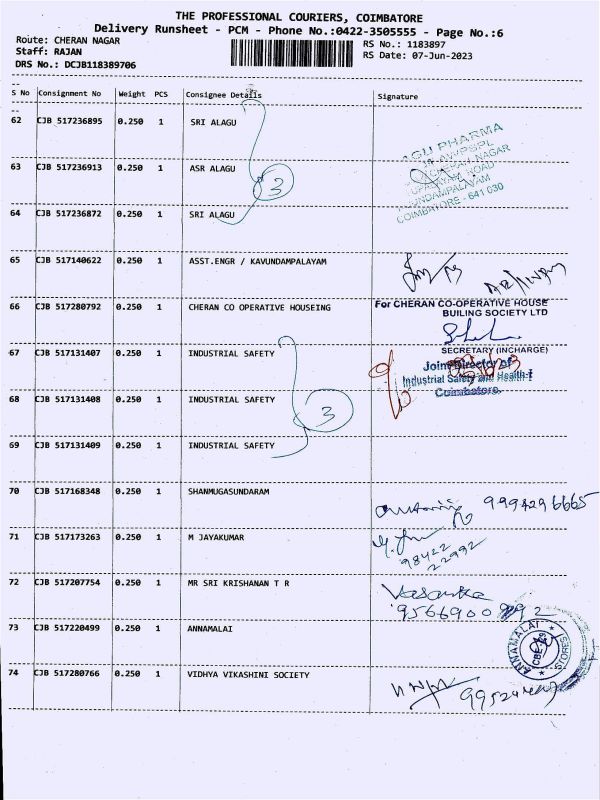 THE PROFESSIONAL COURIERS, COIMBATORE
Delivery Runsheet - PCM - Phone No.:0422-3505555 - Page No.:6
Route: CHERAN NAGAR RS No.: 1183897
Staff: RAJAN RS Date: 07-Jun-2023
DRS No.: DCJB118389706
S No Consignment No Weight PCS Consignee Details Signature
62 CJB 517236895 0.250 1 SRI ALAGU
63 CJB 517236913 0.250 1 ASR ALAGU
3
64 CJB 517236872 0.250 1 SRI ALAGU
GU PHARMA
NAGAR
ROAD
COIMBATORE - 641 030
65 CJB 517140622 0.250 1 ASST.ENGR / KAVUNDAMPALAYAM
66 CJB 517280792 0.250 1 CHERAN CO OPERATIVE HOUSEING
For CHERAN CO-OPERATIVE HOUSE
BUILING SOCIETY LTD
SECRETARY (INCHARGE)
67 CJB 517131407 0.250 1 INDUSTRIAL SAFETY
Joint Director of
Industrial Safety and Health-I
Coimbatore.
68 CJB 517131408 0.250 1 INDUSTRIAL SAFETY
3
69 CJB 517131409 0.250 1 INDUSTRIAL SAFETY
70 CJB 517168348 0.250 1 SHANMUGASUNDARAM
9994296665
71 CJB 517173263 0.250 1 M JAYAKUMAR
98422
22992
72 CJB 517207754 0.250 1 MR SRI KRISHANAN T R
Vasantha
73 CJB 517220499 0.250 1 ANNAMALAI
ANNAMALAI STORES
74 CJB 517280766 0.250 1 VIDHYA VIKASHINI SOCIETY